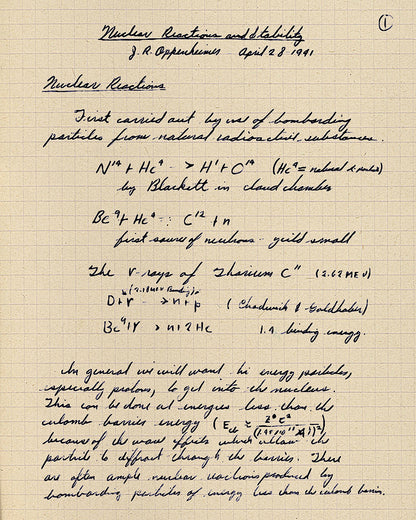 ①
Nuclear Reactions and Stability
J. R. Oppenheimer April 28 1941
Nuclear Reactions
First carried out by use of bombarding
particles from natural radioactive substances.
N¹⁴ + He⁴ → H¹ + O¹⁷ (He⁴ = natural α particle)
by Blackett in cloud chamber
Be⁹ + He⁴ → C¹² + n
first source of neutrons - yield small
The γ-rays of Thorium C" (2.62 MEV)
(2.18 MEV Binding)
D + γ → n + p (Chadwick & Goldhaber)
Be⁹ + γ → n + 2 He 1.9 binding energy.
In general we will want hi energy particles,
especially protons, to get into the nucleus.
This can be done at energies less than the
coulomb barrier energy (
because of the wave effects which allow the
particle to diffract through the barrier. There
are often ample nuclear reactions produced by
bombarding particles of energy less than the coulomb barrier.